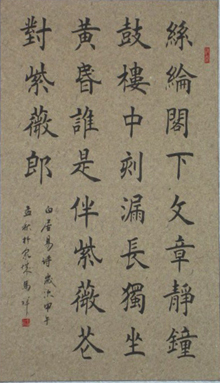 絲綸閣下文章靜鐘
鼓樓中刻漏長獨坐
黃昏誰是伴紫薇花
對紫薇郎
白居易詩歲次甲午
孟秋於